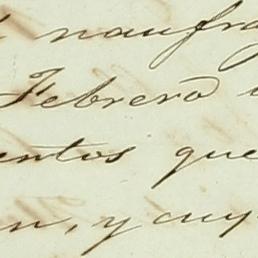 naufra
Febrero
entos que
n, y cuy